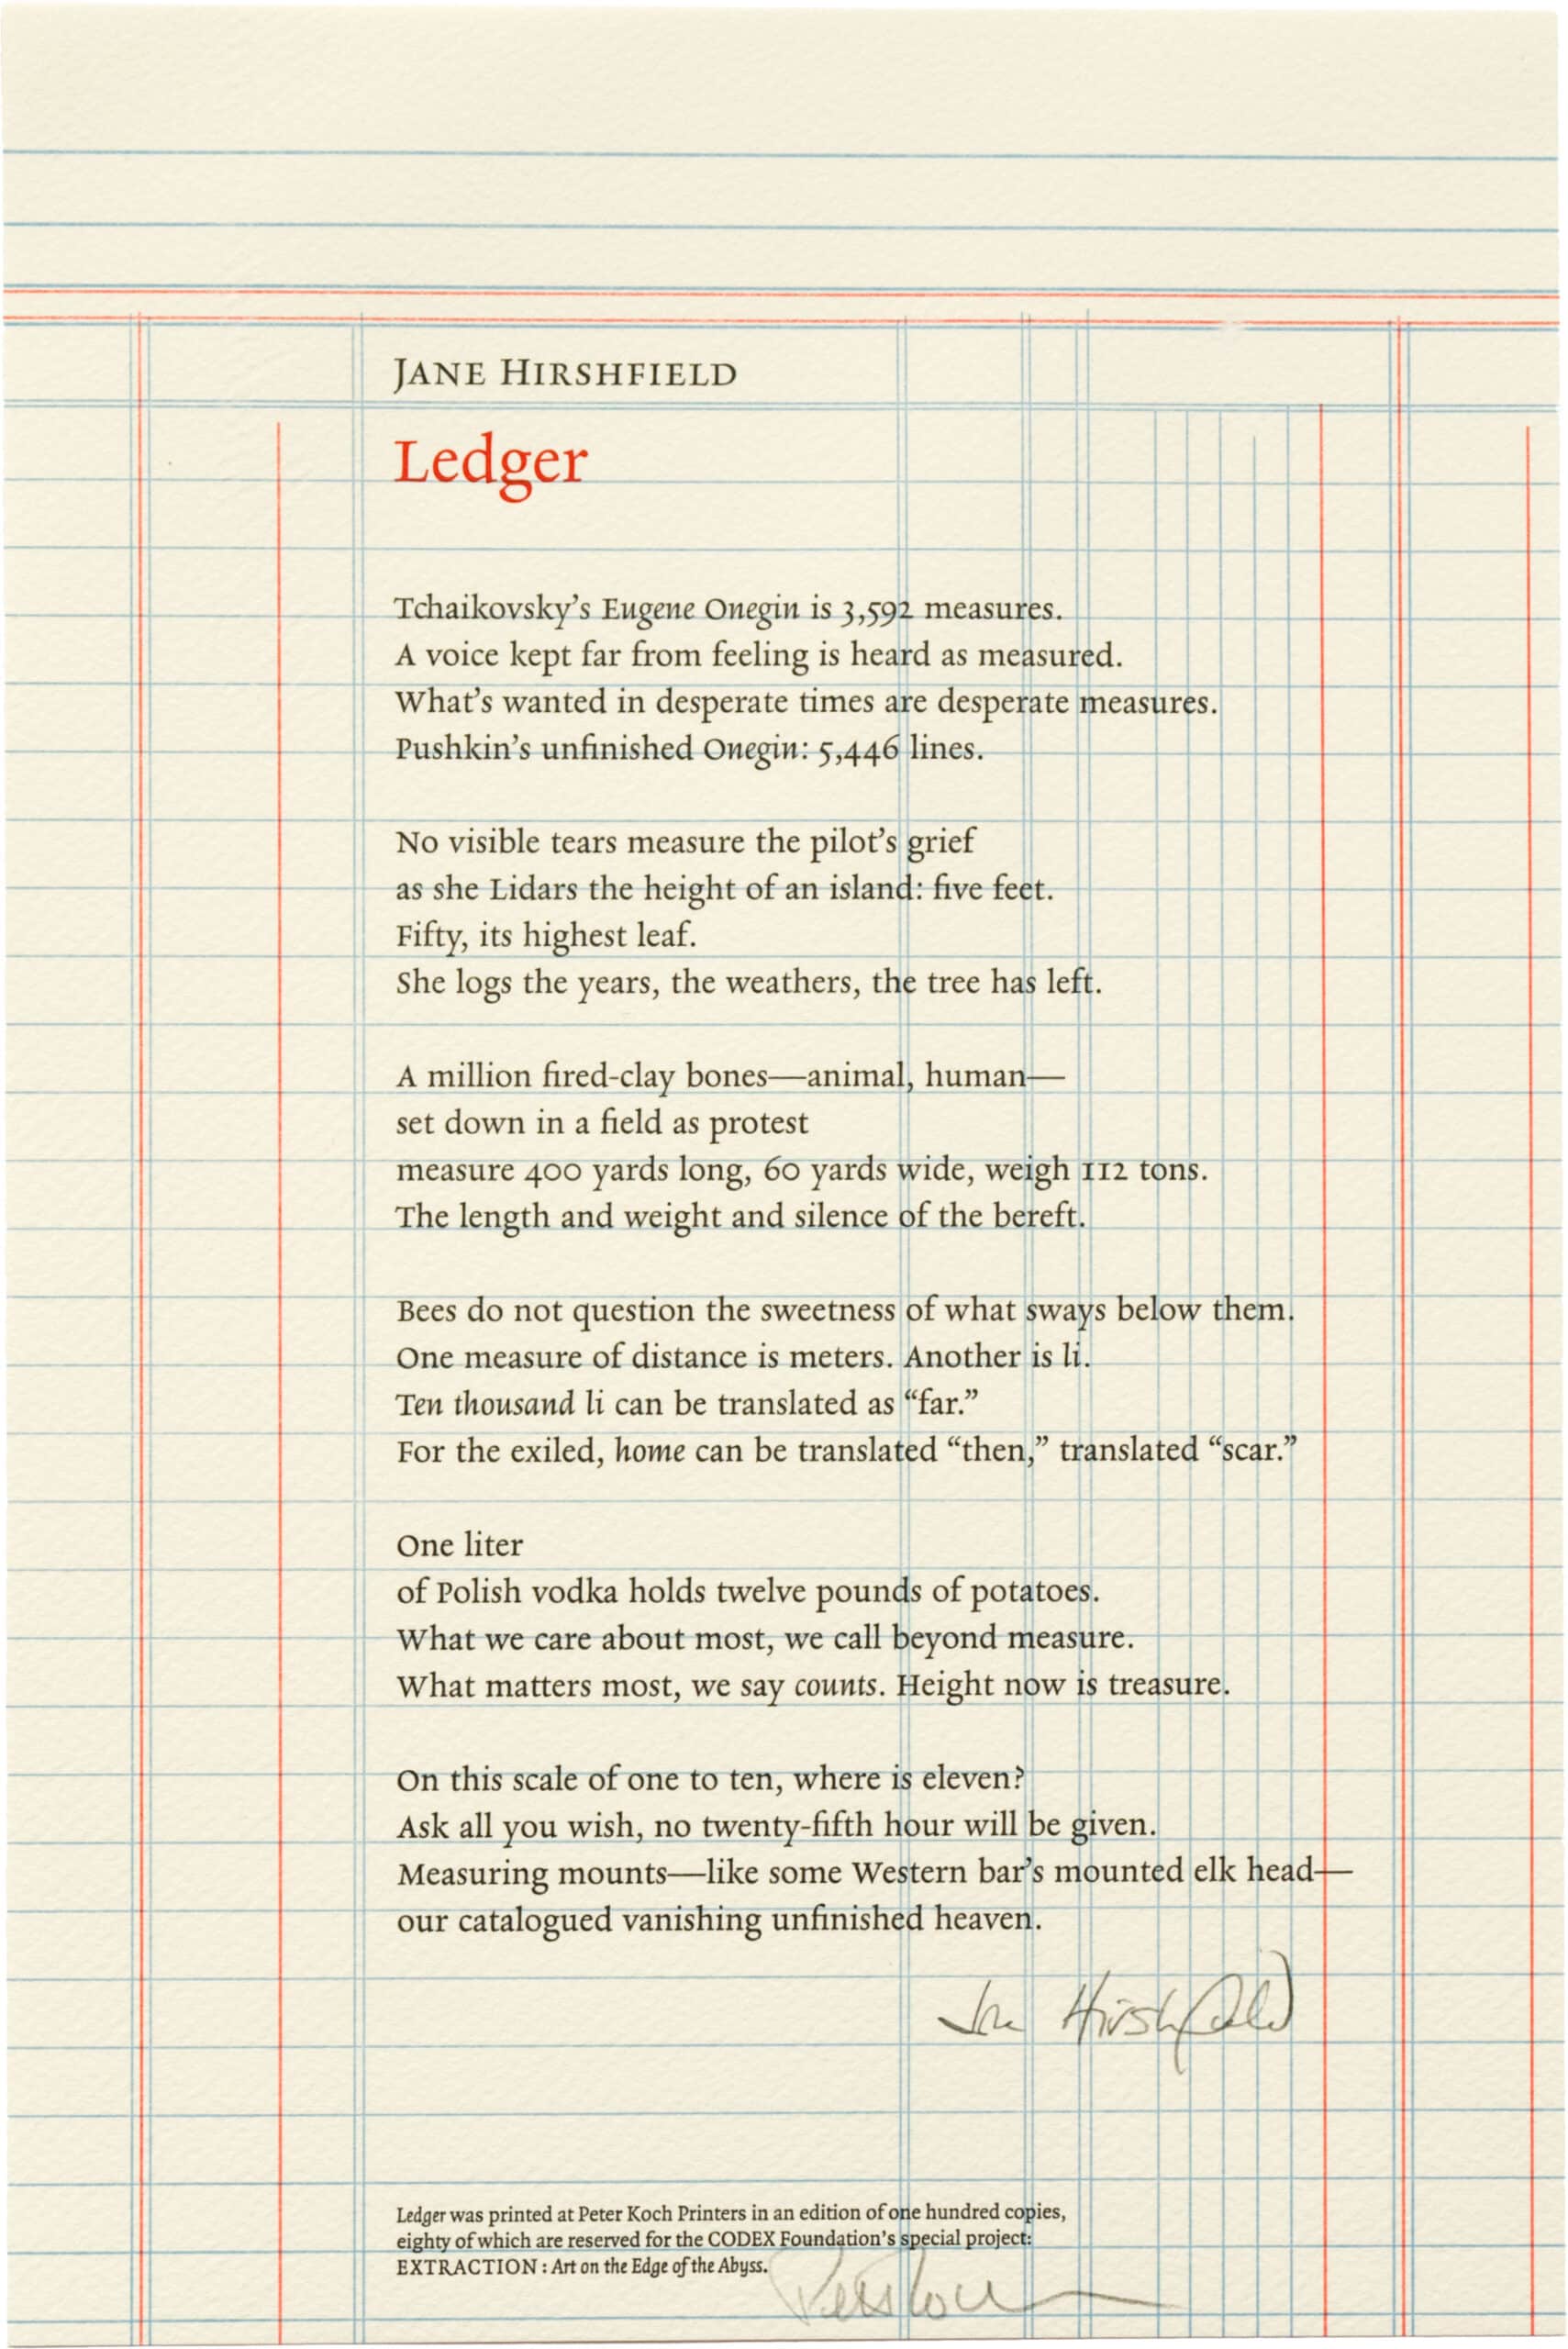 JANE HIRSHFIELD
Ledger
Tchaikovsky's Eugene Onegin is 3,592 measures.
A voice kept far from feeling is heard as measured.
What's wanted in desperate times are desperate measures.
Pushkin's unfinished Onegin: 5,446 lines.
No visible tears measure the pilot's grief
as she Lidars the height of an island: five feet.
Fifty, its highest leaf.
She logs the years, the weathers, the tree has left.
A million fired-clay bones—animal, human—
set down in a field as protest
measure 400 yards long, 60 yards wide, weigh 112 tons.
The length and weight and silence of the bereft.
Bees do not question the sweetness of what sways below them.
One measure of distance is meters. Another is li.
Ten thousand li can be translated as “far.”
For the exiled, home can be translated “then,” translated “scar.”
One liter
of Polish vodka holds twelve pounds of potatoes.
What we care about most, we call beyond measure.
What matters most, we say counts. Height now is treasure.
On this scale of one to ten, where is eleven?
Ask all you wish, no twenty-fifth hour will be given.
Measuring mounts—like some Western bar's mounted elk head—
our catalogued vanishing unfinished heaven.
Jane Hirshfield
Ledger was printed at Peter Koch Printers in an edition of one hundred copies,
eighty of which are reserved for the CODEX Foundation's special project:
EXTRACTION : Art on the Edge of the Abyss.